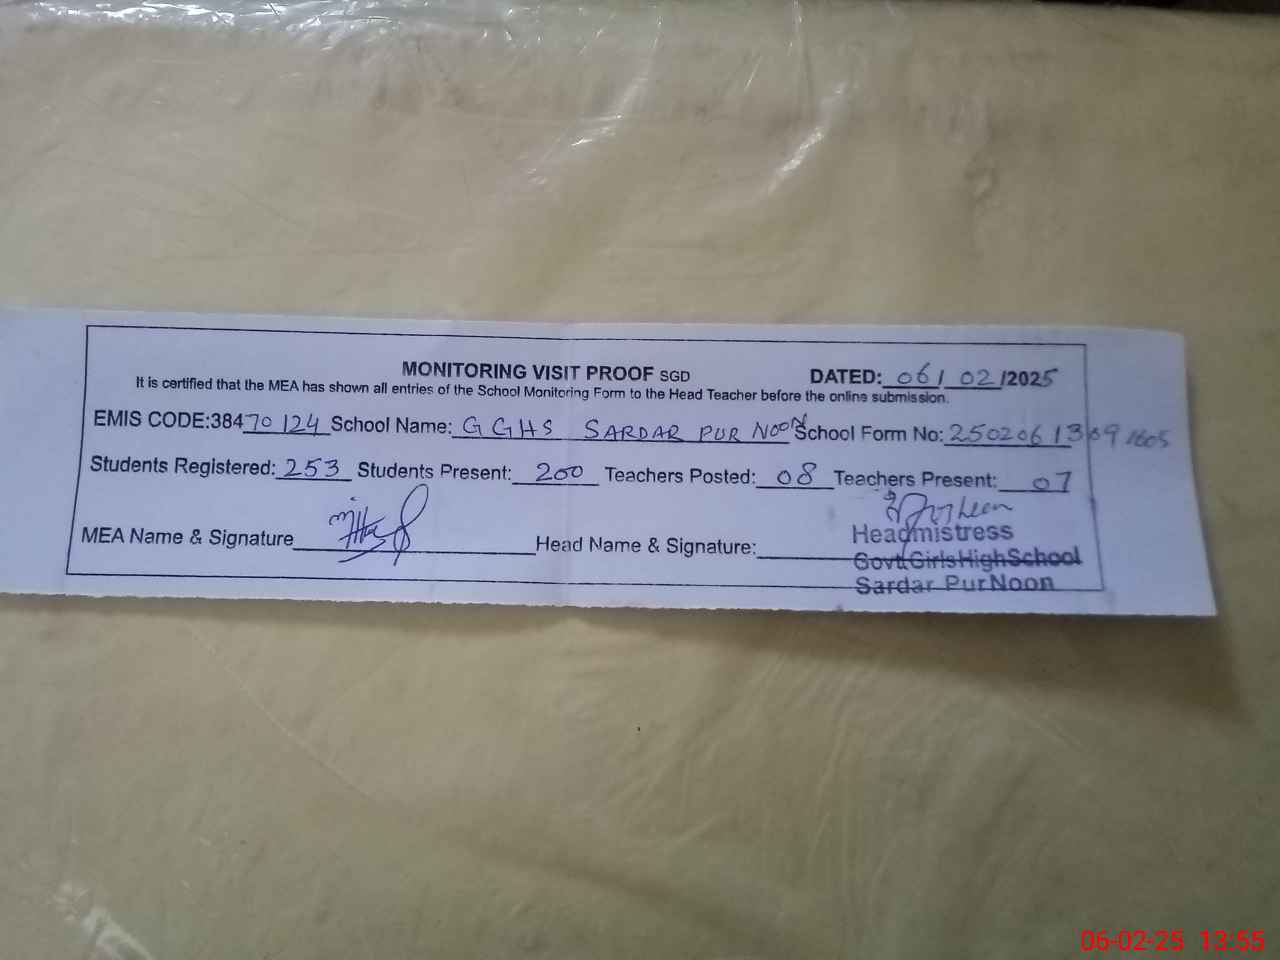 MONITORING VISIT PROOF SGD DATED: 06/02/2025
It is certified that the MEA has shown all entries of the School Monitoring Form to the Head Teacher before the online submission.
EMIS CODE:38470124 School Name: GGHS SARDAR PUR NOON School Form No: 25020613091605
Students Registered: 253 Students Present: 200 Teachers Posted: 08 Teachers Present: 07
MEA Name & Signature Head Name & Signature:
Headmistress
Govt.Girls High School
Sardar Pur Noon
06-02-25 13:55